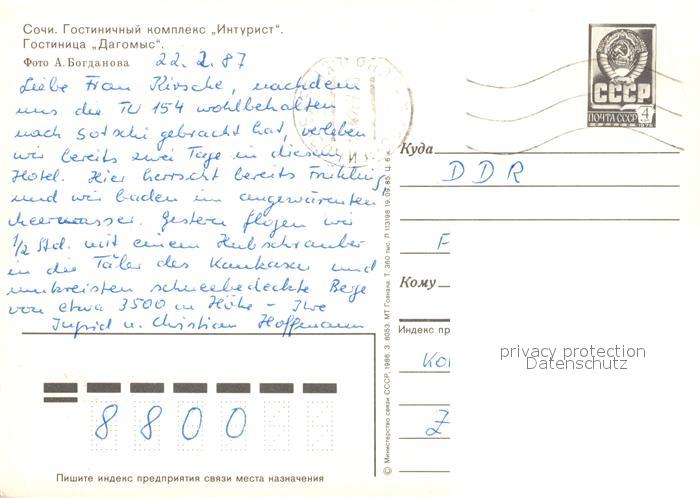 Сочи. Гостиничный комплекс „Интурист“.
Гостиница „Дагомыс“.
Фото А. Богданова
22. 2. 87
Liebe Frau Kirsche, nachdem
uns die TU 154 wohlbehalten
nach Sotschi gebracht hat, verleben
wir bereits zwei Tage in diesem
Hotel. Hier herrscht bereits Frühling,
und wir baden im angewärmten
Meerwasser. Gestern flogen wir
1/2 Std. mit einem Hubschrauber
in die Täler des Kaukasus und
umkreisten schneebedeckte Berge
von etwa 3500 m Höhe – Ihre
Ingrid u. Christian Hoffmann
СССР
ПОЧТА СССР
4
Куда
DDR
F
Кому
Индекс пр
Z
privacy protection
Datenschutz
8800
Пишите индекс предприятия связи места назначения
© Министерство связи СССР, 1986. З. 8053. МТ Гознака. Т. 360 тыс. Л 113198 19.09.85. Ц. 6 к.